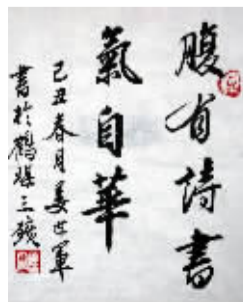 腹有詩書
氣自華
己丑春月姜世軍
書於鶴煤三礦